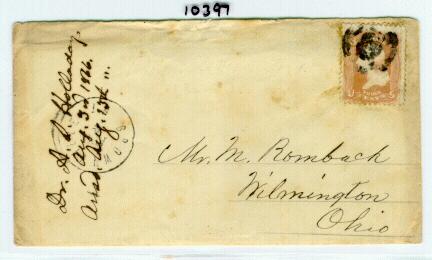 10397
Dr. A. S. Holladay,
Aug. 3rd 1866.
Ansd. Aug. 13th "
Mr. M. Romback
Wilmington
Ohio